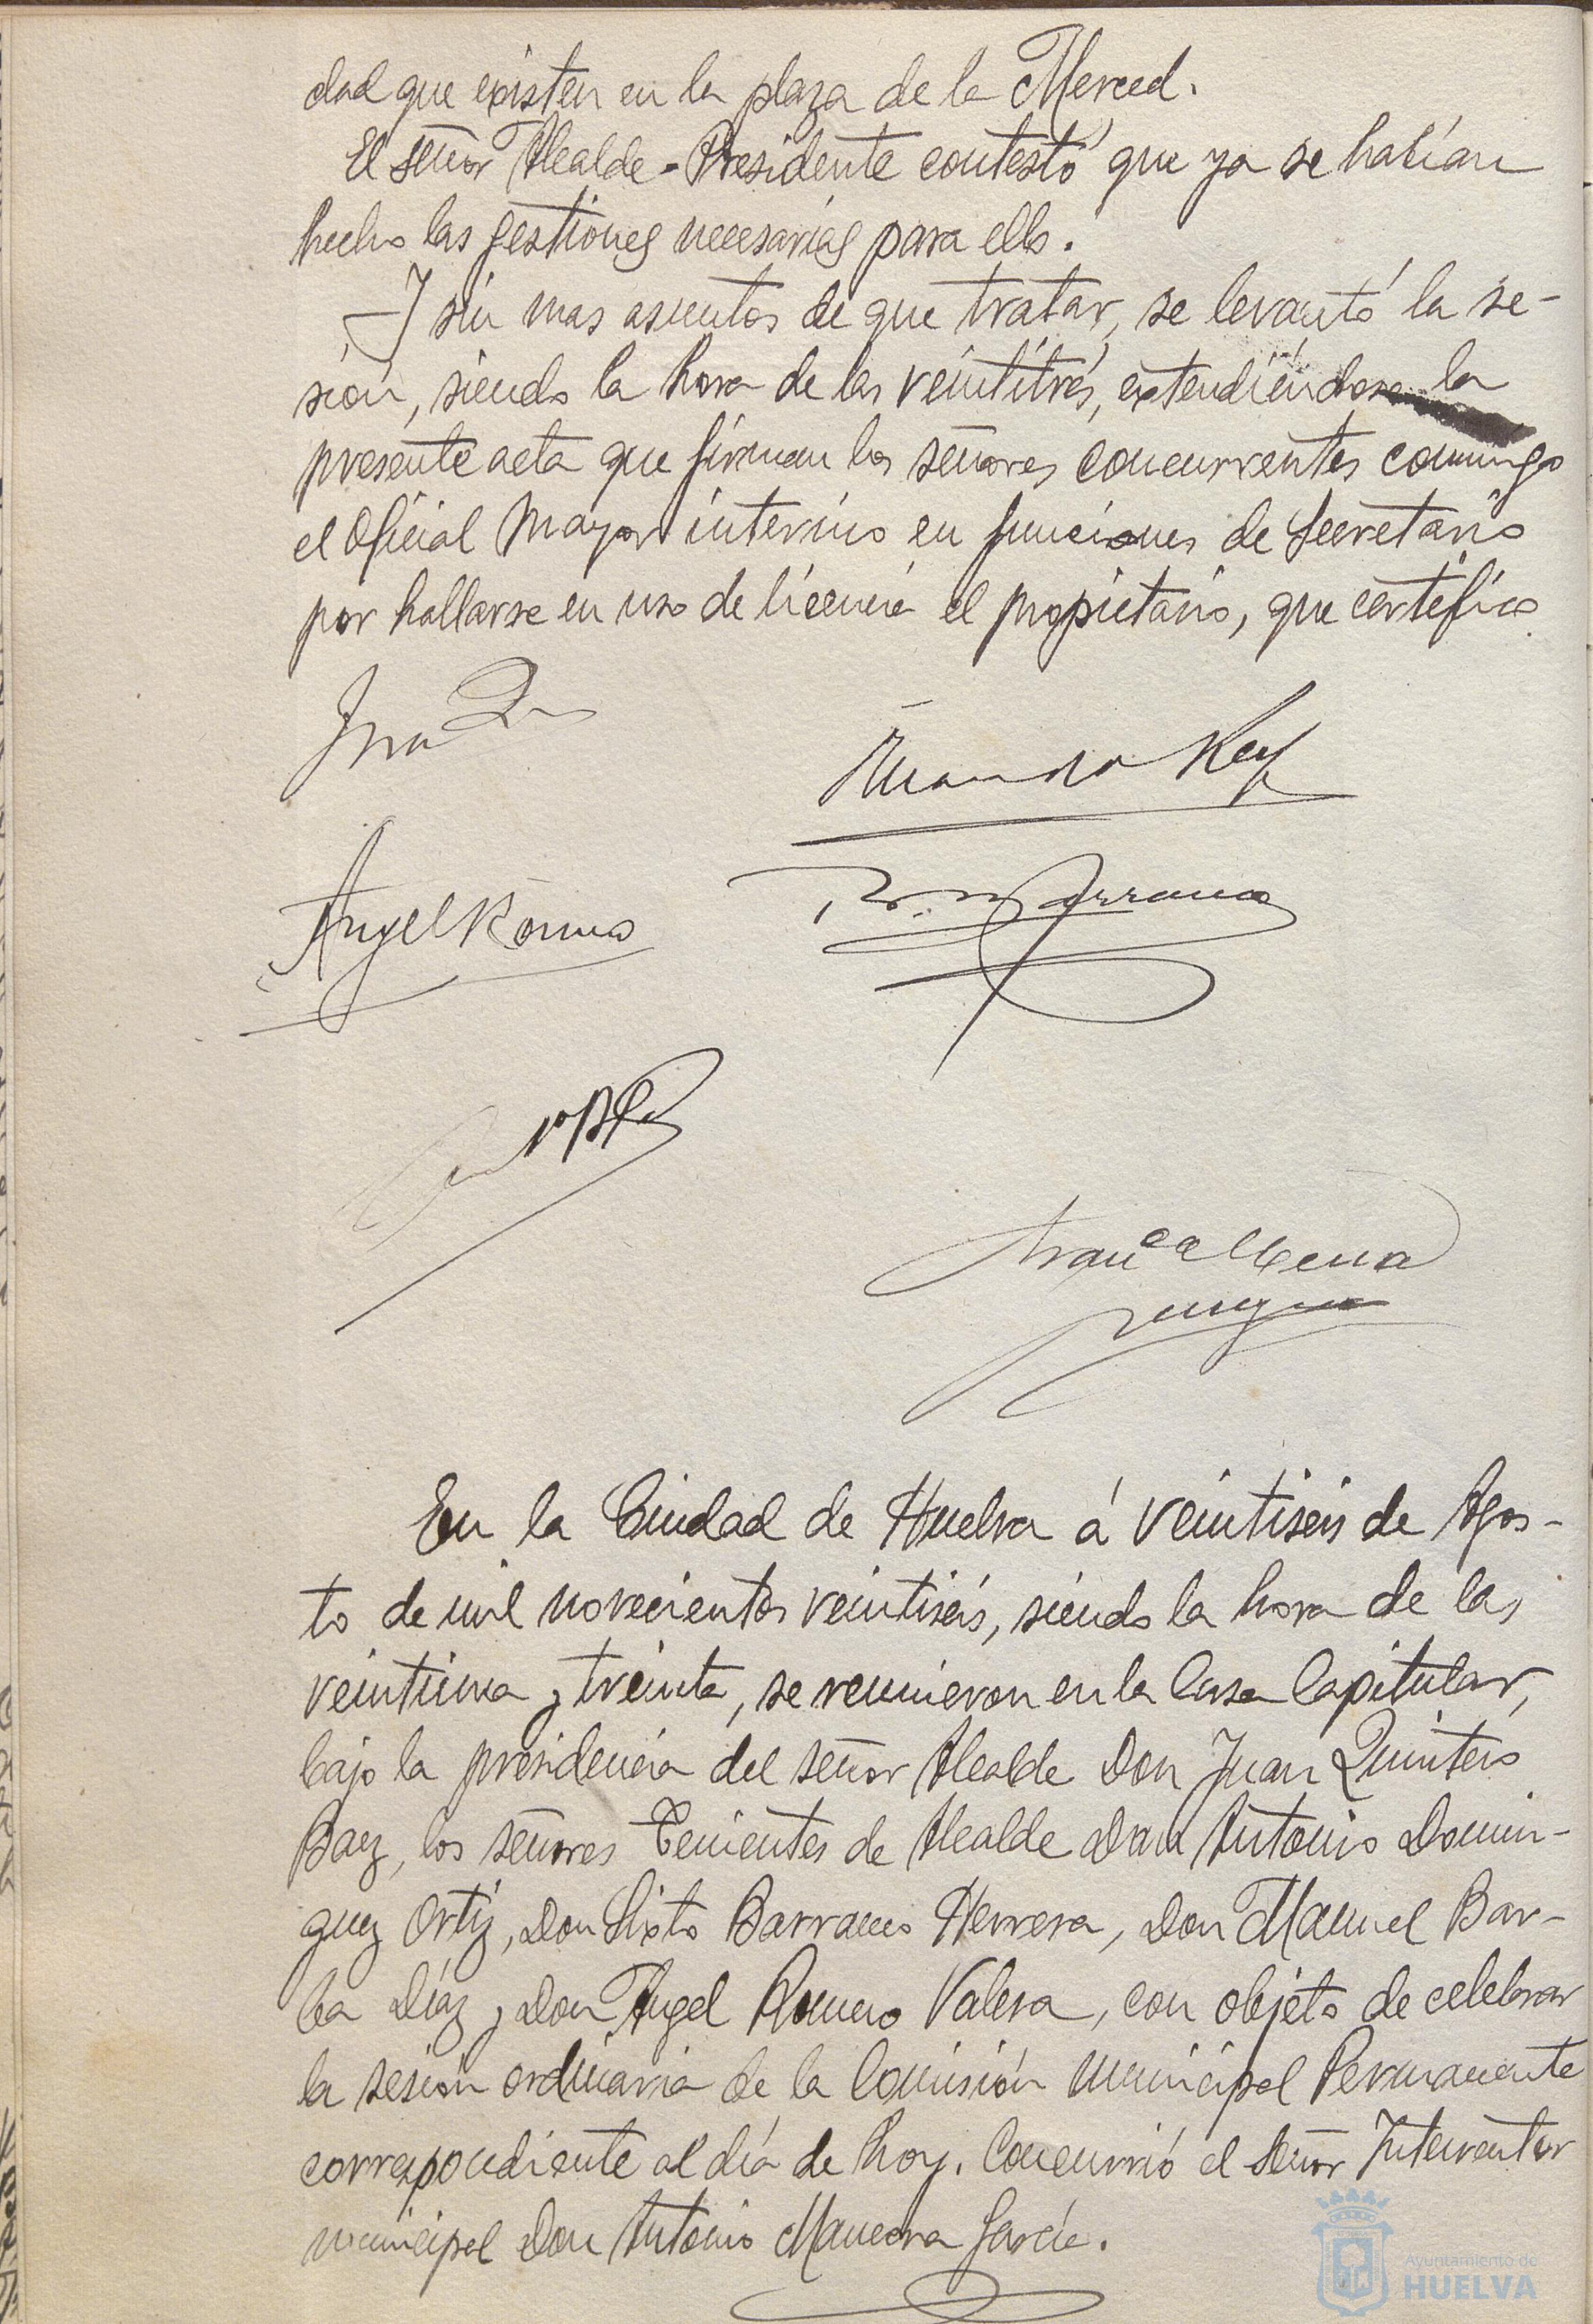 dad que existen en la plaza de la Merced.
El señor Alcalde-Presidente contestó que ya se habían
hecho las gestiones necesarias para ello.
Y sin mas asuntos de que tratar, se levantó la se-
sión, siendo la hora de las veintitrés, extendiéndose la
presente acta que firman los señores concurrentes conmigo
el Oficial Mayor interino en funciones de Secretario
por hallarse en uso de licencia el propietario, que certifico
Juan Q
Rey
Angel Romero
Barranco
En la Ciudad de Huelva á veintiseis de Agos-
to de mil novecientos veintiséis, siendo la hora de las
veintiuna y treinta, se reunieron en la Casa Capitular,
bajo la presidencia del señor Alcalde Don Juan Quintero
Baez, los señores Tenientes de Alcalde Don Antonio Domin-
guez Ortiz, Don Sixto Barranco Herrera, Don Manuel Bar-
ba Díaz y Don Angel Romero Valera, con objeto de celebrar
la sesión ordinaria de la Comisión Municipal Permanente
correspondiente al día de hoy. Concurrió el señor Interventor
municipal Don Antonio Mancera García.
Ayuntamiento de
HUELVA